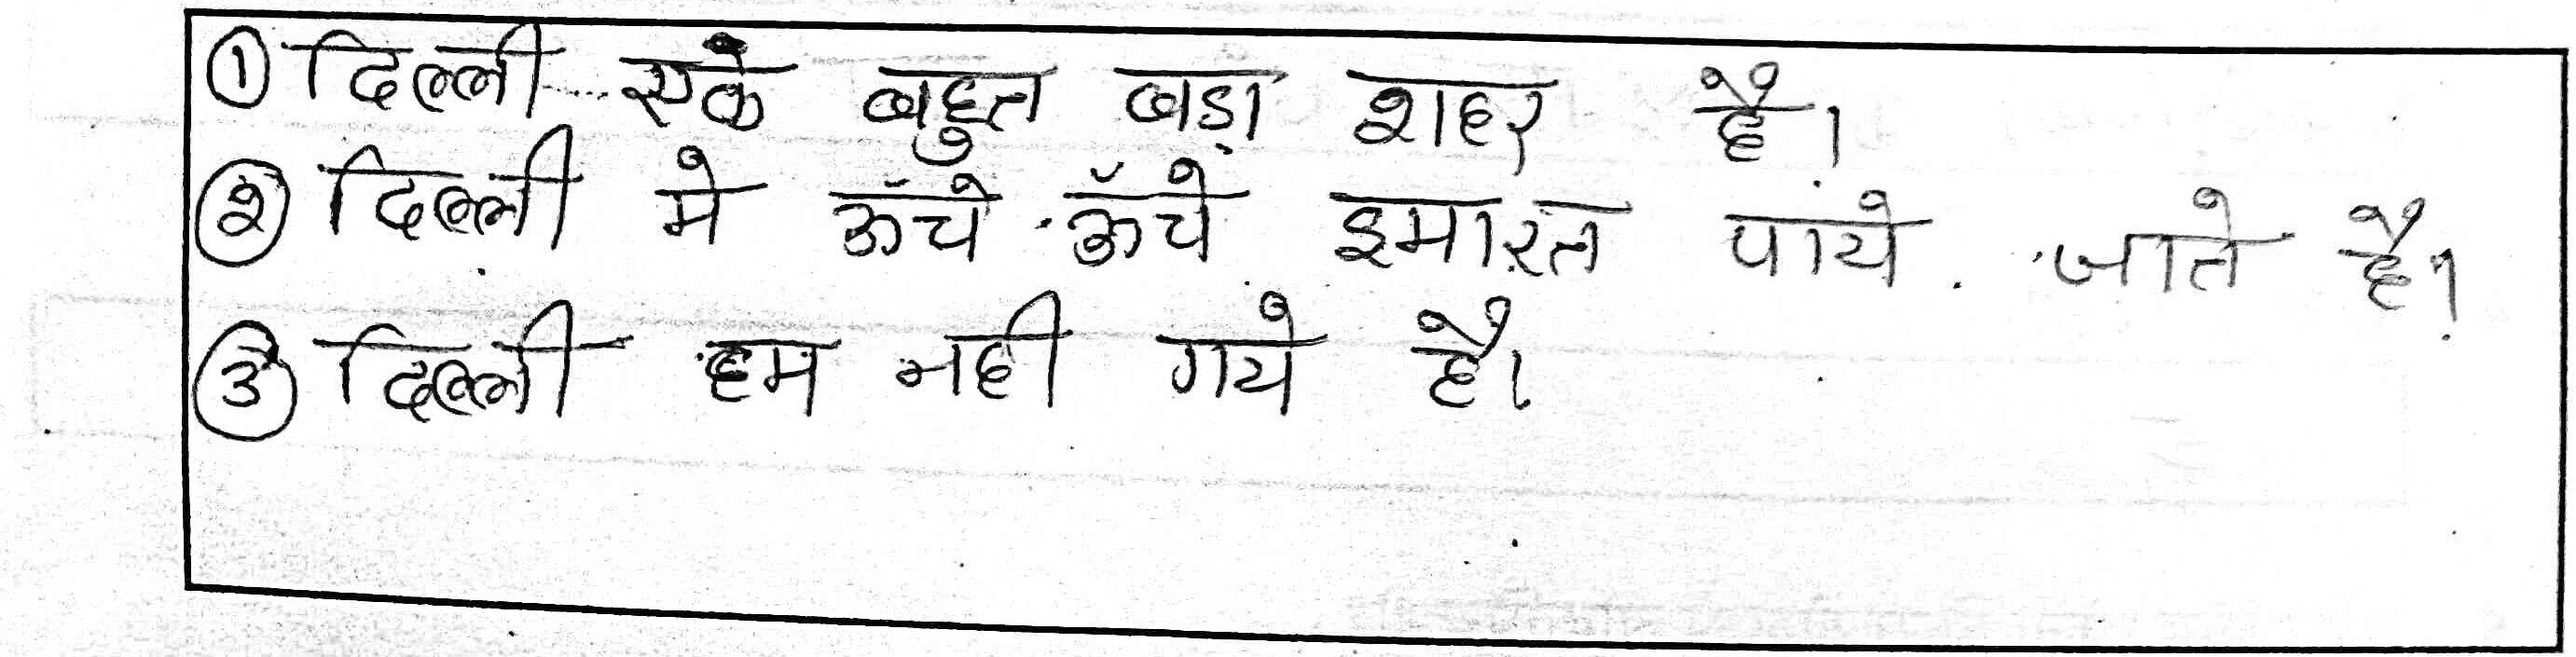 ① दिल्ली एक बहुत बड़ा शहर है।
② दिल्ली मे ऊँचे ऊँचे इमारत पाये जाते है।
③ दिल्ली हम नही गये है।